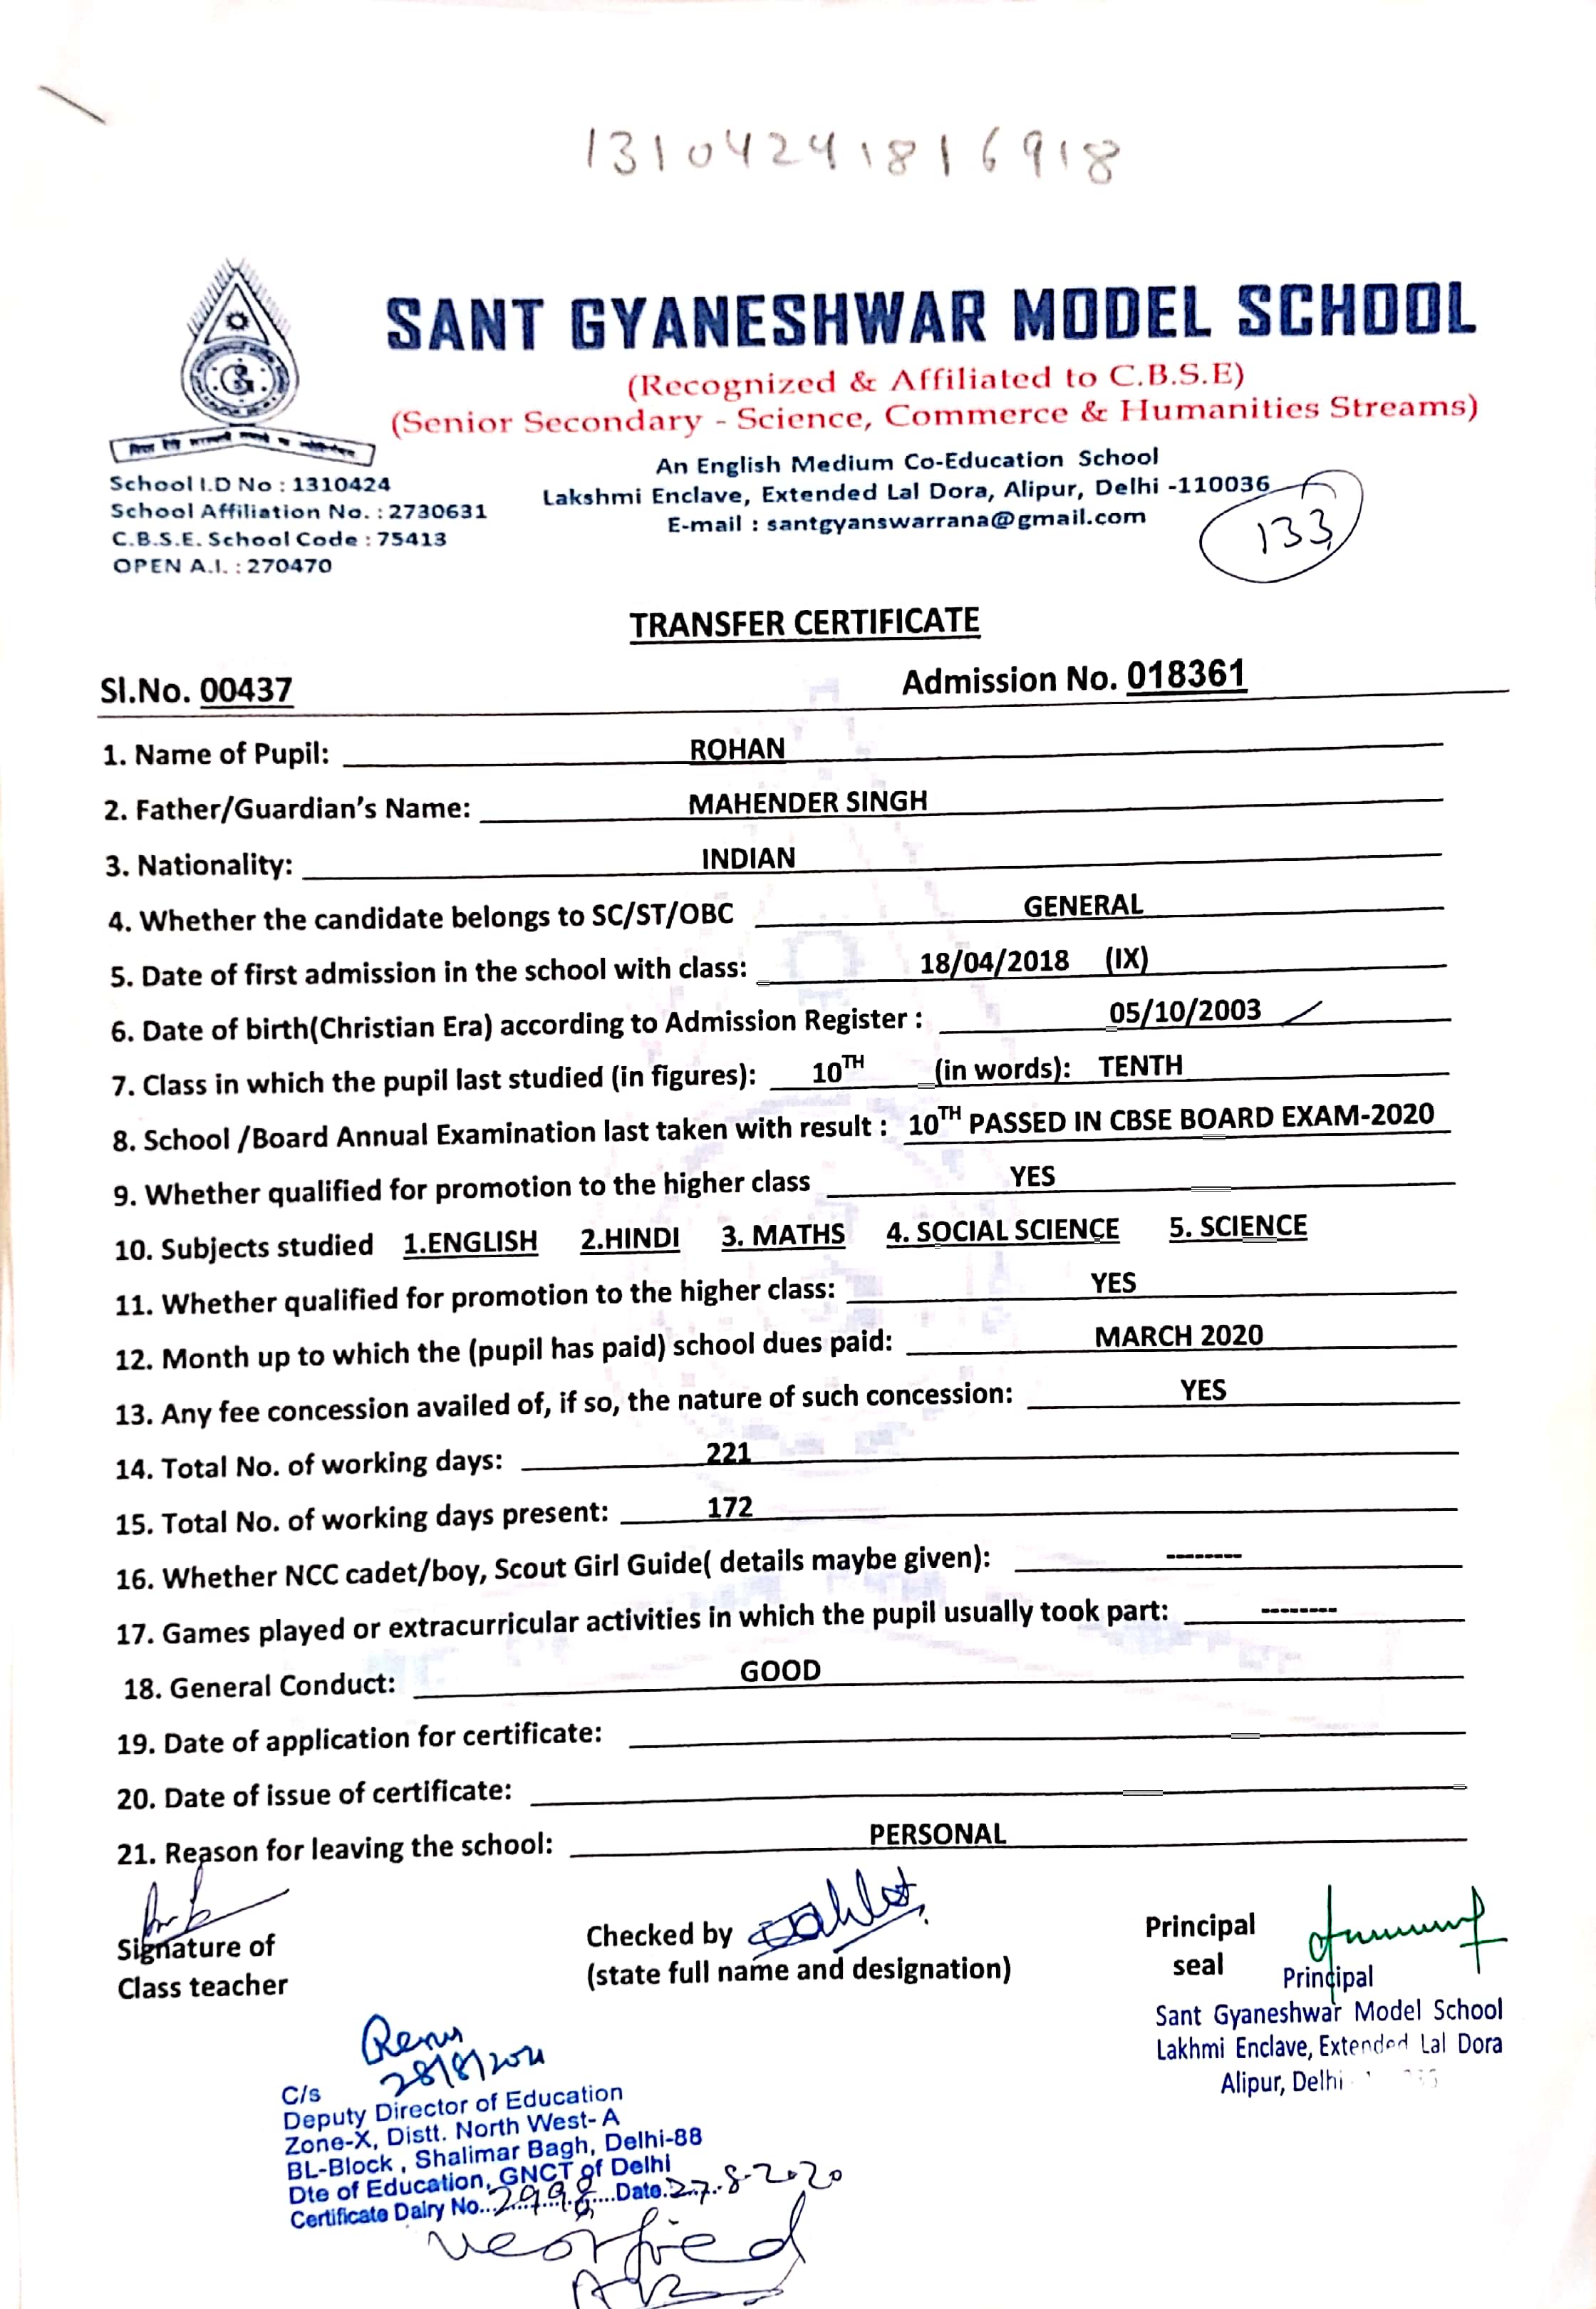 13104241816918
SANT GYANESHWAR MODEL SCHOOL
(Recognized & Affiliated to C.B.S.E)
(Senior Secondary - Science, Commerce & Humanities Streams)
An English Medium Co-Education School
Lakshmi Enclave, Extended Lal Dora, Alipur, Delhi -110036
E-mail : santgyanswarrana@gmail.com
133
School I.D No : 1310424
School Affiliation No. : 2730631
C.B.S.E. School Code : 75413
OPEN A.I. : 270470
TRANSFER CERTIFICATE
Sl.No. 00437 Admission No. 018361
1. Name of Pupil: ROHAN
2. Father/Guardian's Name: MAHENDER SINGH
3. Nationality: INDIAN
4. Whether the candidate belongs to SC/ST/OBC GENERAL
5. Date of first admission in the school with class: 18/04/2018 (IX)
6. Date of birth(Christian Era) according to Admission Register : 05/10/2003
7. Class in which the pupil last studied (in figures): 10TH (in words): TENTH
8. School /Board Annual Examination last taken with result : 10TH PASSED IN CBSE BOARD EXAM-2020
9. Whether qualified for promotion to the higher class YES
10. Subjects studied 1.ENGLISH 2.HINDI 3. MATHS 4. SOCIAL SCIENCE 5. SCIENCE
11. Whether qualified for promotion to the higher class: YES
12. Month up to which the (pupil has paid) school dues paid: MARCH 2020
13. Any fee concession availed of, if so, the nature of such concession: YES
14. Total No. of working days: 221
15. Total No. of working days present: 172
16. Whether NCC cadet/boy, Scout Girl Guide( details maybe given): --------
17. Games played or extracurricular activities in which the pupil usually took part: --------
18. General Conduct: GOOD
19. Date of application for certificate:
20. Date of issue of certificate:
21. Reason for leaving the school: PERSONAL
Signature of
Class teacher
Checked by
(state full name and designation)
Principal
seal
Principal
Sant Gyaneshwar Model School
Lakhmi Enclave, Extended Lal Dora
Alipur, Delhi
Renu
C/s
Deputy Director of Education
Zone-X, Distt. North West- A
BL-Block , Shalimar Bagh, Delhi-88
Dte of Education, GNCT of Delhi
Certificate Dairy No...2998....Date.27.8.2020